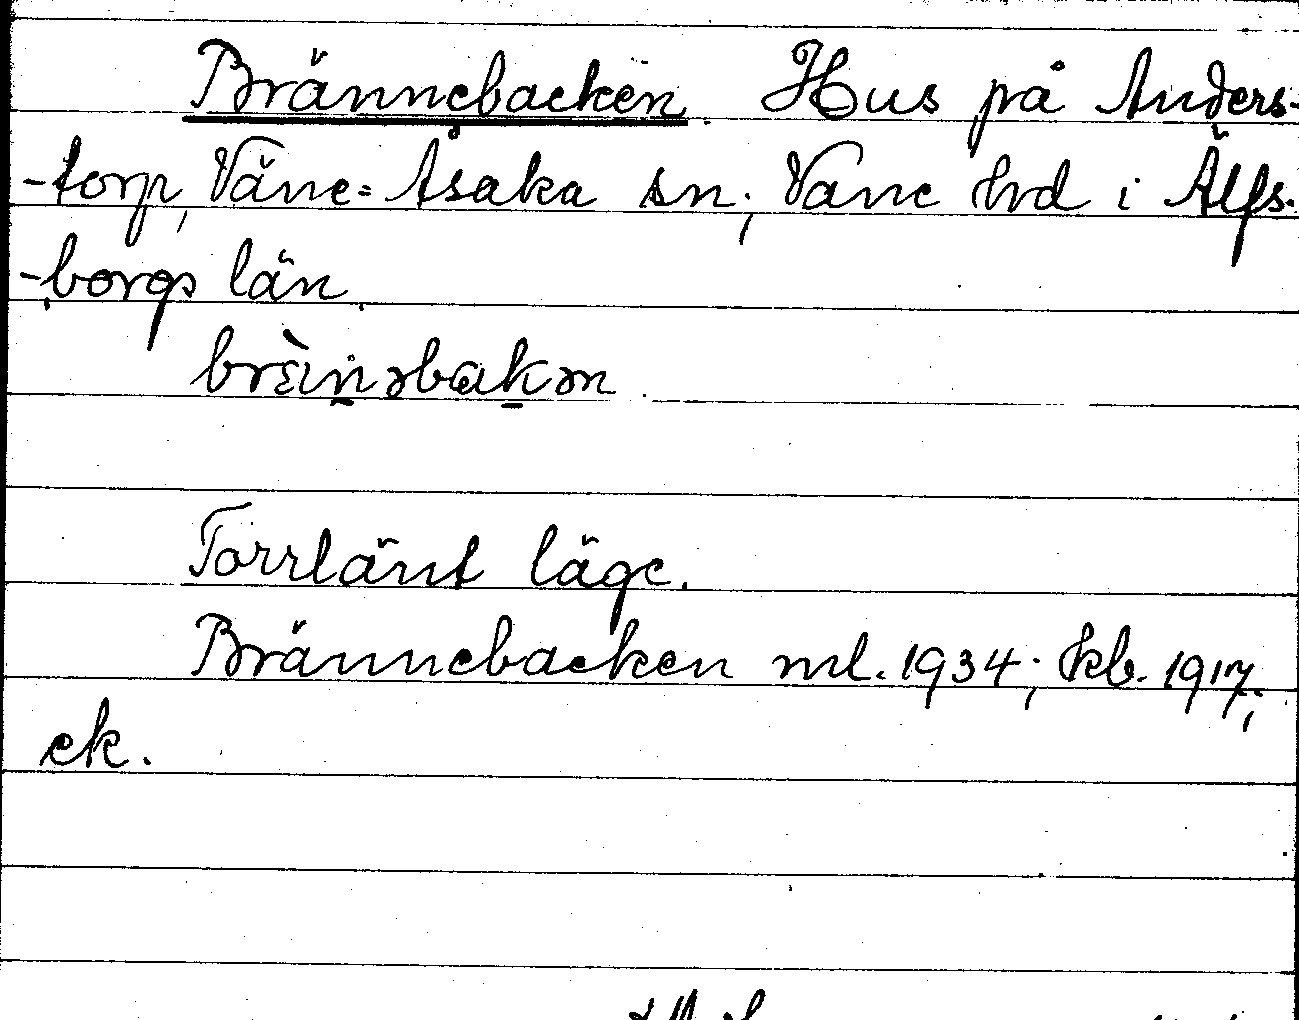 Brännebacken. Hus på Anders-
-torp, Väne=Åsaka sn; Vane hrd i Älfs-
-borgs län.
brɛ̀in̰əbak̠ən.
Torrlänt läge.
Brännebacken ml. 1934; kb. 1917;
ek.